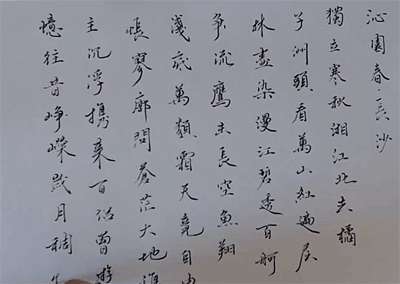 沁園春·長沙
獨立寒秋湘江北去橘
子洲頭看萬山紅遍层
林盡染漫江碧透百舸
争流鷹击長空魚翔
淺底萬類霜天竞自由
悵寥廓問蒼茫大地誰
主沉浮携來百侣曾遊
憶往昔崢嶸歲月稠